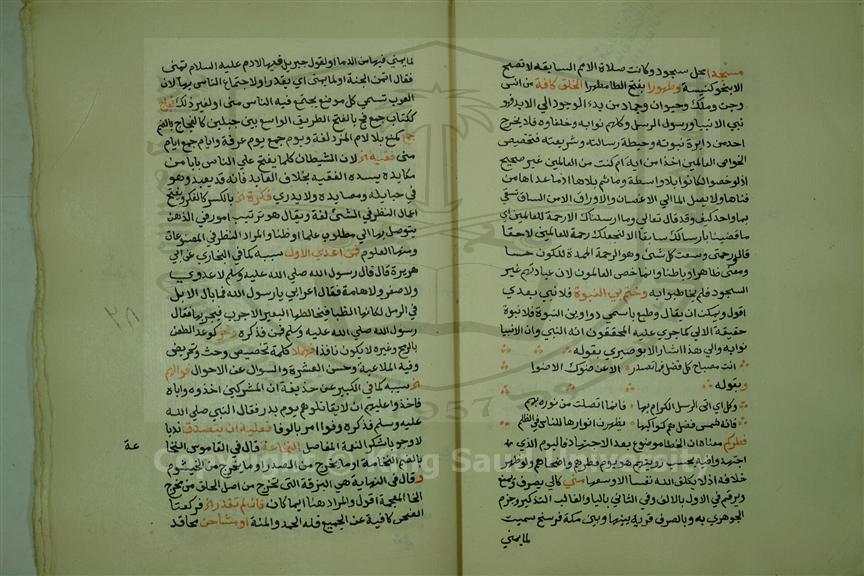 مسجدا محل سجود وكانت صلاة الامم السابقه لا تصح
الا بنحو كنيسة وطهورا بفتح الطا مطهرا الخلق كافة من انس
وجن وملك وحيوان وجماد من بدء الوجود الى الابد فهو
نبي الانبيا ورسول الرسل وكلهم نوابه وخلفاوه فلا يخرج
احد من دايرة نبوته وحيطة رسالته وشريعته فتخصيص
الخواص العالمين اخذا من اية ام كنت من العالمين غير صحيح
اذ لو خصوا لكانوا بلا واسطة وما ثم بلاها اذ ما عداها من
فناها ولا يصل الما الي الاغصان والاوراق الا من الساق تسقي
بما واحد كيف وقد قال تعالى وما ارسلناك الا رحمة للعالمين اي
ما قضينا بارسالك سابقا الا لنجعلك رحمة للعالمين لاحقا
قال ورحمتي وسعت كل شئ وهو الرحمة الممدة للكون حسا
ومعنى ظاهرا وباطنا وانما خص العالمون لان عبادتهم غير
السجود فلم يخاطبوا به وختم بي النبوة فلا نبي بعدي
اقول ويمكن ان يقال وطبع باسمي دواوين النبوة فلا نبوة
حقيقة الا لي كما جري عليه المحققون انه النبي وان الانبيا
نوابه والي هذا اشار الابوصيري بقوله
انت مصباح كل فضل فما تصدر الا عن ضوئك الاضوا
وبقوله
وكل اي اتى الرسل الكرام بها فانما اتصلت من نوره بهم
فانه شمس فضل هم كواكبها يظهرن انوارها للناس في الظلم
فطركم معناه ان الخطا موضوع بعد الاجتهاد فاليوم الذي
اجتهد وافيه بحسب رويتهم هو يوم فطرهم واضحاهم ولو ظهر
خلافه اذ لا يكلف الله نفسا الا وسعها منى كالى يصرف ويمنع
ويرقم في الاول بالالف وفي الثاني باليا والغالب التذكير وجزم
الجوهري به وبالصرف قرية بينها وبين مكة فرسخ سميت
لما يمنى
لما يمنى فيها من الدما او لقول جبريل فيها لادم عليه السلام تمنى
فقال اتمنى الجنة او لما يمنى اي يقدر او لاجتماع الناس بها لان
العرب تسمي كل موضع يجتمع فيه الناس منى او لغير ذلك فجاج
ككتاب جمع فج بالفتح الطريق الواسع بين جبلين كالفجاج بالضم
جمع كمنع بلا لام المزدلفة ويوم جمع يوم عرفة وايام جمع ايام
منى فقيه الخ لان الشيطان كلما يفتح علي الناس بابا من
مكايده يسده الفقيه بخلاف العابد فانه قد يعبد وهو
في حبايله ومصايده ولا يدري فكرة الخ بالكسر كالفكر ويفتح
اعمال النظر في الشئ لغة ويقال هو ترتيب امور في الذهن
يتوصل بها الي مطلوب علما او ظنا والمراد النظر في المصنوعات
ومنها العلوم فمن اعدي الاول سببه كما في البخاري عن ابي
هريرة قال قال رسول الله صلى الله عليه وسلم لا عدوي
ولا صفر ولا هامة فقال اعرابي يا رسول الله فما بال الابل
في الرمل لكانها الظبا فيخالطها البعير الاجرب فيجربها فقال
رسول الله صلى الله عليه وسلم فمن فذكره وخز كوعد الطعن
بالرمح وغيره لا يكون نافذا فهلا كلمة تحضيض وحث وتحريض
وفيه الملاعبة وحسن العشرة والسوال عن الاحوال فوا لهم
الخ سببه كما في الكبير عن حذيفة ان المشركين اخذوه واباه
فاخذوا عليهم ان لا يقاتلوهم يوم بدر فقال النبي صلى الله
عليه وسلم فذكره وفوا امر بالوفا فعليه ان يتصدق ندبا
لا وجوبا شكر النعمة المفاصل النخاعة قال في القاموس النخا
عة
بالضم النخامة او ما يخرج من الصدر او ما يخرج من الخيشوم
وقال في النهاية هي البزقة التي تخرج من اصل الحلق من مخرج
الخا المعجمة اقول والمراد هنا ايما كان فان لم تقدر الخ فركعتا
الضحى كافية عن الجميع فله الحمد والمنة او مشاحن يحاقد
1957
King Saud University